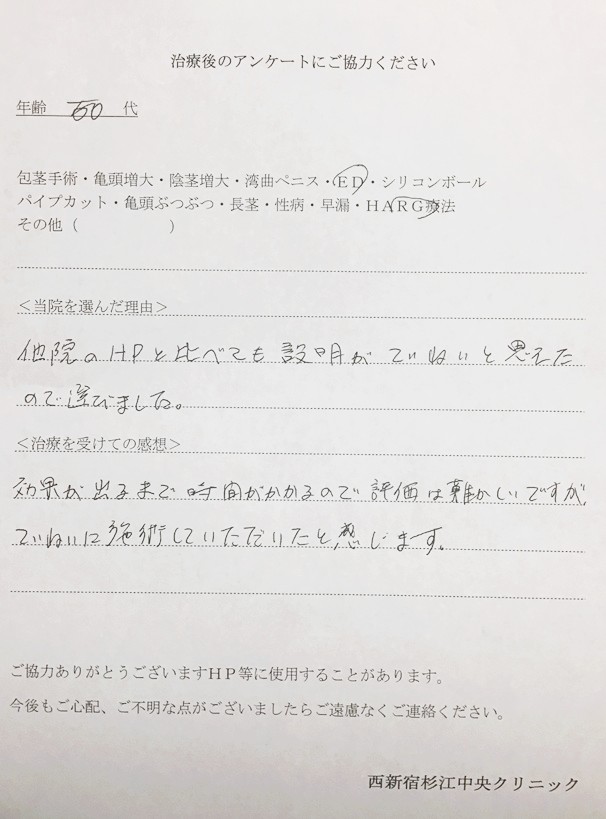 治療後のアンケートにご協力ください
年齢 50 代
包茎手術・亀頭増大・陰茎増大・湾曲ペニス・ED・シリコンボール
パイプカット・亀頭ぶつぶつ・長茎・性病・早漏・HARG療法
その他（ ）
＜当院を選んだ理由＞
他院のHPと比べても説明がていねいと思えた
ので選びました。
＜治療を受けての感想＞
効果が出るまで時間がかかるので評価は難かしいですが、
ていねいに施術していただいたと感じます。
ご協力ありがとうございますHP等に使用することがあります。
今後もご心配、ご不明な点がございましたらご遠慮なくご連絡ください。
西新宿杉江中央クリニック